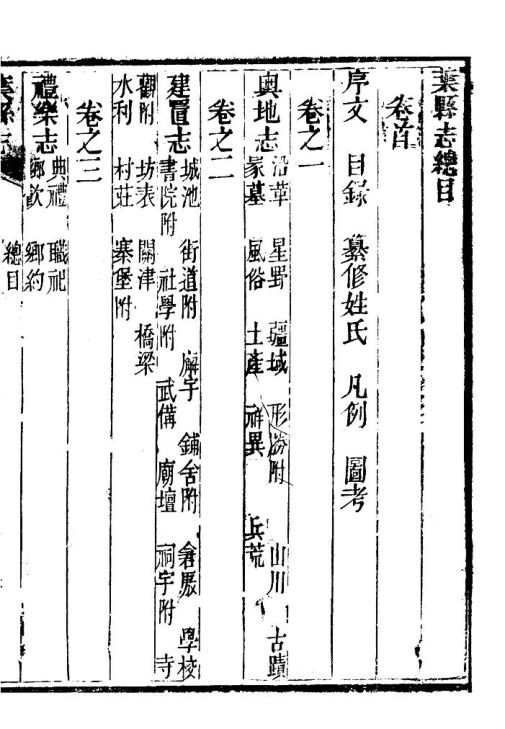 葉縣志總目
卷首
序文 目錄 纂修姓氏 凡例 圖考
卷之一
輿地志 沿革 星野 疆域 形勝附 山川 古蹟
冡墓 風俗 土產 祥異 兵荒
卷之二
建置志 城池 街道附 廨宇 鋪舍附 倉厫 學校
書院附 社學附 武備 廟壇 祠宇附 寺
觀附 坊表 關津 橋梁
水利 村莊 寨堡附
卷之三
禮樂志 典禮 職祀
鄉飲 鄉約
葉縣志 總目